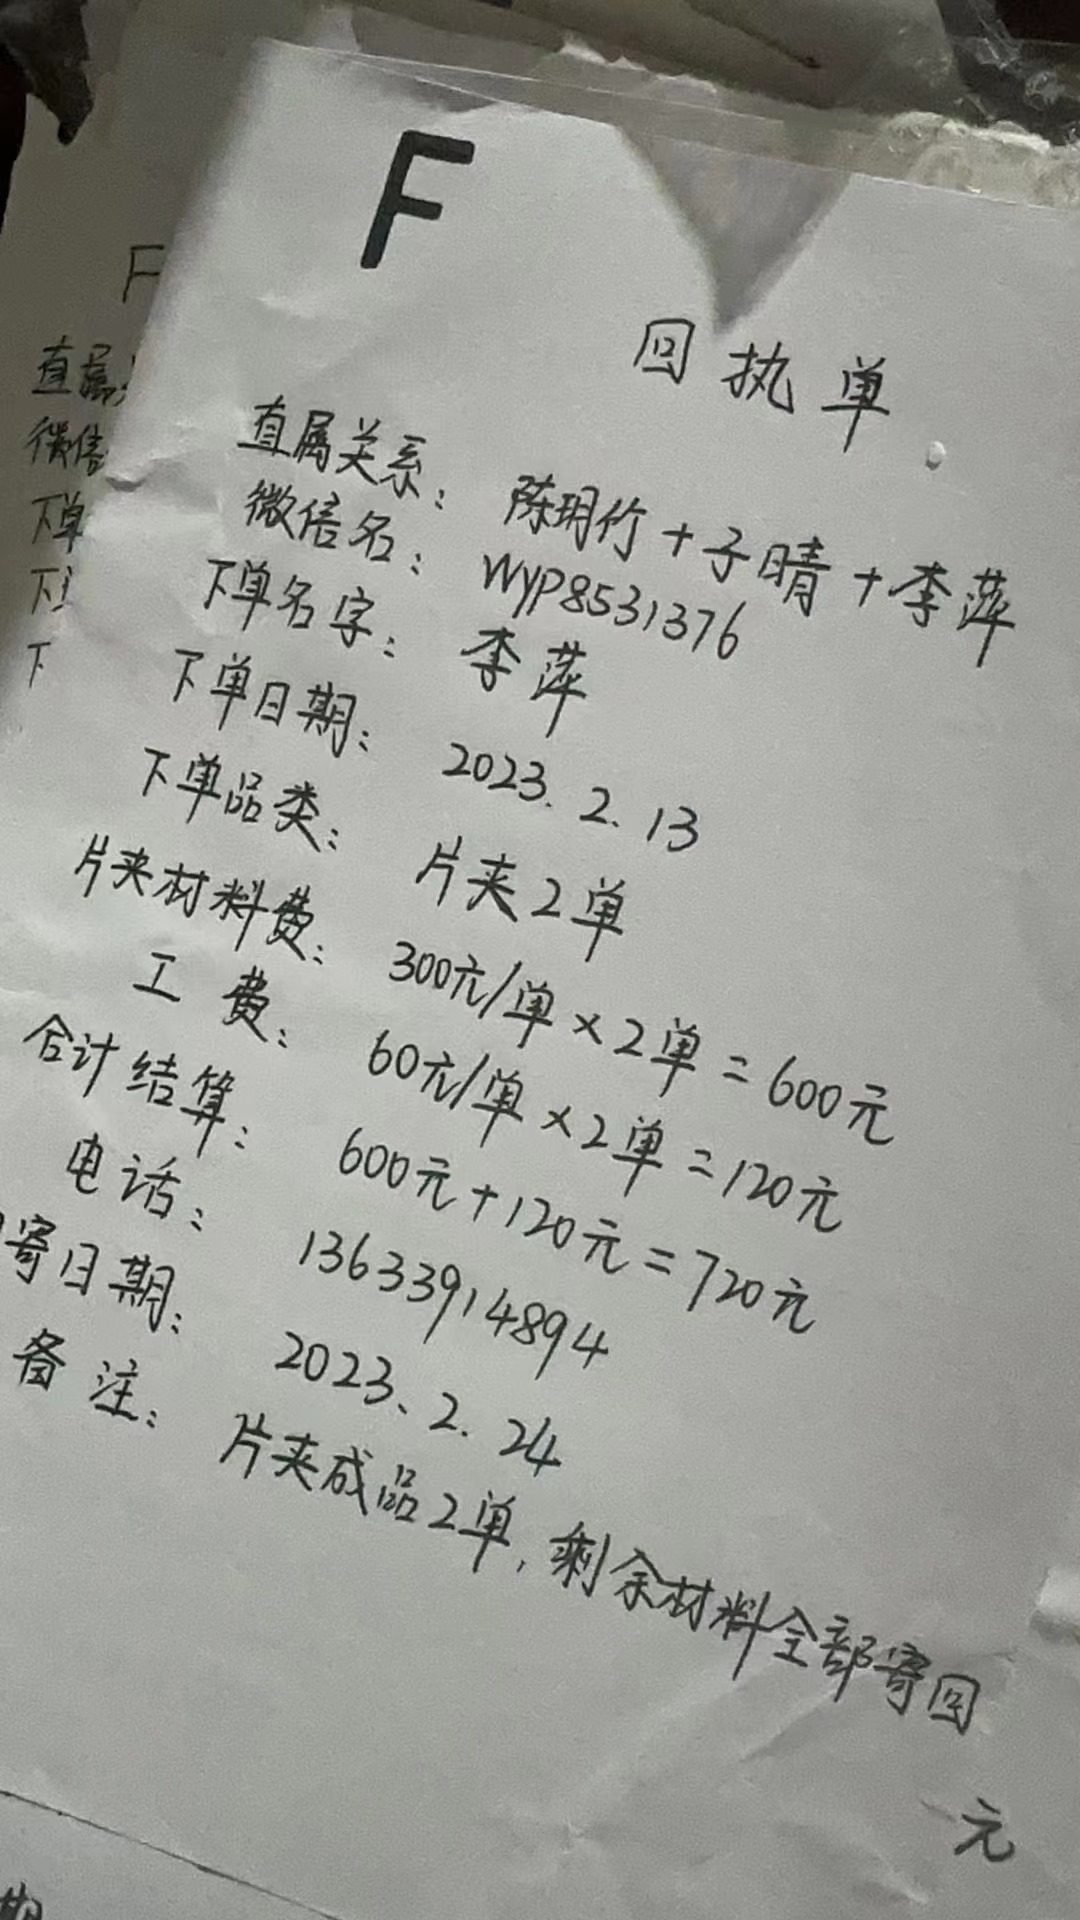 F
回执单
直属关系：陈玥竹+子晴+李萍
微信名：wyp8531376
下单名字：李萍
下单日期：2023.2.13
下单品类：片夹2单
片夹材料费：300元/单×2单=600元
工费：60元/单×2单=120元
合计结算：600元+120元=720元
电话：13633914894
寄日期：2023.2.24
备注：片夹成品2单，剩余材料全部寄回
元
F
直属
微信
下单
下